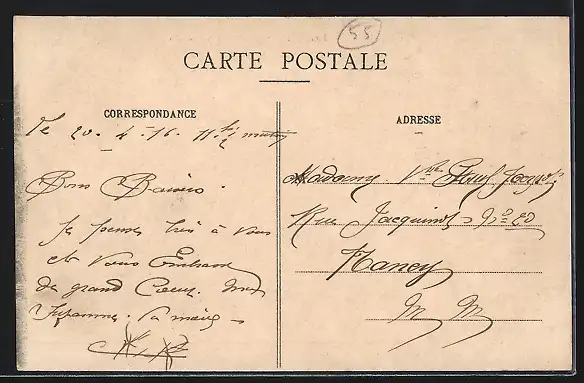 55
CARTE POSTALE
CORRESPONDANCE
ADRESSE
le 20. 4-16. 11h 1/2 matin
Bons Baisers.
Je pense bien à vous
et vous Embrasse
de grand Coeur. 
Suzanne.
Madame Vve
Rue Jacquinot
Nancy
M M